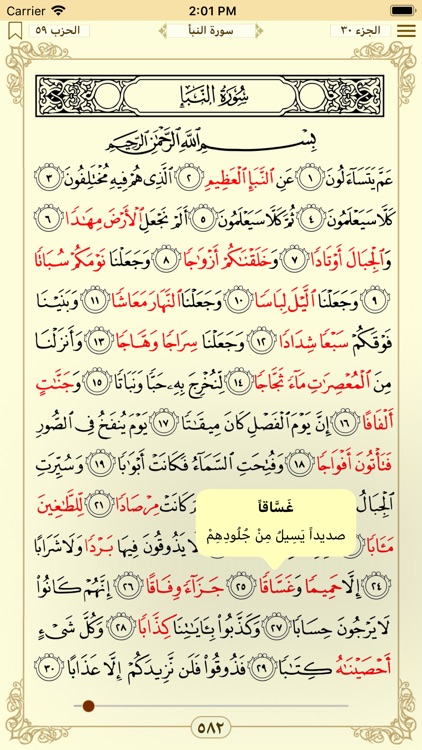 Carrier 2:01 PM
الحزب ٥٩ سورة النبأ الجزء ٣٠
سُورَةُ النَّبَإِ
بِسْمِ اللَّهِ الرَّحْمَٰنِ الرَّحِيمِ
عَمَّ يَتَسَآءَلُونَ ١ عَنِ النَّبَإِ الْعَظِيمِ ٢ الَّذِى هُمْ فِيهِ مُخْتَلِفُونَ ٣
كَلَّا سَيَعْلَمُونَ ٤ ثُمَّ كَلَّا سَيَعْلَمُونَ ٥ أَلَمْ نَجْعَلِ الْأَرْضَ مِهَٰدًا ٦
وَالْجِبَالَ أَوْتَادًا ٧ وَخَلَقْنَٰكُمْ أَزْوَٰجًا ٨ وَجَعَلْنَا نَوْمَكُمْ سُبَاتًا
٩ وَجَعَلْنَا الَّيْلَ لِبَاسًا ١٠ وَجَعَلْنَا النَّهَارَ مَعَاشًا ١١ وَبَنَيْنَا
فَوْقَكُمْ سَبْعًا شِدَادًا ١٢ وَجَعَلْنَا سِرَاجًا وَهَّاجًا ١٣ وَأَنزَلْنَا
مِنَ الْمُعْصِرَٰتِ مَآءً ثَجَّاجًا ١٤ لِّنُخْرِجَ بِهِۦ حَبًّا وَنَبَاتًا ١٥ وَجَنَّٰتٍ
أَلْفَافًا ١٦ إِنَّ يَوْمَ الْفَصْلِ كَانَ مِيقَٰتًا ١٧ يَوْمَ يُنفَخُ فِى الصُّورِ
فَتَأْتُونَ أَفْوَاجًا ١٨ وَفُتِحَتِ السَّمَآءُ فَكَانَتْ أَبْوَٰبًا ١٩ وَسُيِّرَتِ
الْجِبَالُ كَانَتْ مِرْصَادًا ٢١ لِّلطَّٰغِينَ
غَسَّاقاً
صديداً يَسِيلُ مِنْ جُلُودِهِمْ
مَـَٔابًا لَّا يَذُوقُونَ فِيهَا بَرْدًا وَلَا شَرَابًا
٢٤ إِلَّا حَمِيمًا وَغَسَّاقًا ٢٥ جَزَآءً وِفَاقًا ٢٦ إِنَّهُمْ كَانُوا۟
لَا يَرْجُونَ حِسَابًا ٢٧ وَكَذَّبُوا۟ بِـَٔايَٰتِنَا كِذَّابًا ٢٨ وَكُلَّ شَىْءٍ
أَحْصَيْنَٰهُ كِتَٰبًا ٢٩ فَذُوقُوا۟ فَلَن نَّزِيدَكُمْ إِلَّا عَذَابًا ٣٠
٥٨٢